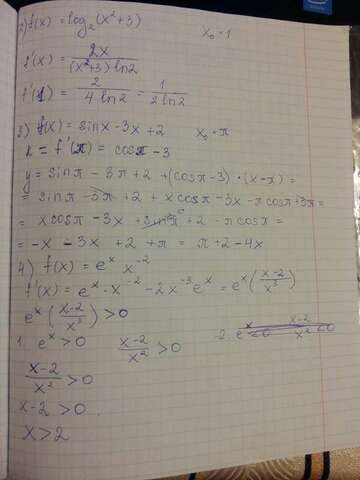 2) f(x) = log₂(x²+3) x₀ = 1
f'(x) = 2x / ((x²+3) ln2)
f'(1) = 2 / (4 ln2) = 1 / (2 ln2)
3) f(x) = sinx - 3x + 2 x₀ = π
k = f'(π) = cosπ - 3
y = sinπ - 3π + 2 + (cosπ - 3)·(x - π) =
= sinπ - 3π + 2 + x cosπ - 3x - π cosπ + 3π =
= x cosπ - 3x + sinπ + 2 - π cosπ =
= -x - 3x + 2 + π = π + 2 - 4x
4) f(x) = eˣ x⁻²
f'(x) = eˣ · x⁻² - 2x⁻³ eˣ = eˣ ((x-2)/x³)
eˣ ((x-2)/x³) > 0
1. eˣ > 0 (x-2)/x² > 0 2. eˣ < 0 (x-2)/x² < 0
(x-2)/x² > 0
x - 2 > 0
x > 2